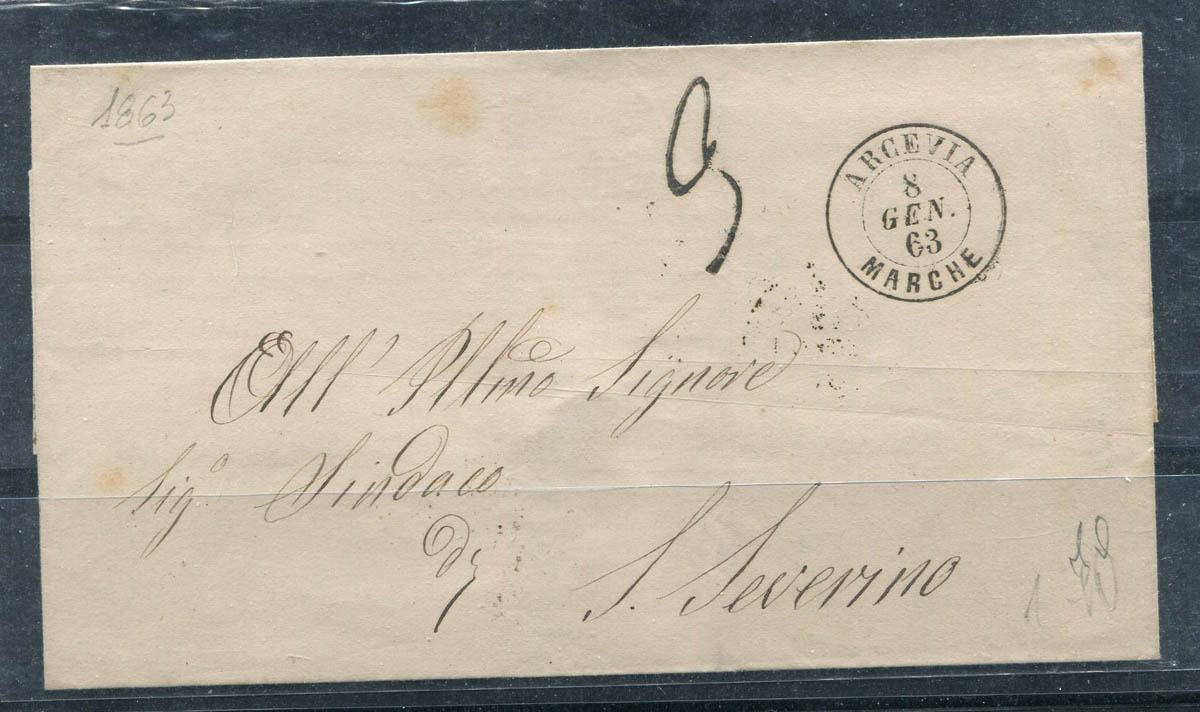 1863
ARCEVIA
8
GEN.
63
MARCHE
All' Illmo Signore
Sigo Sindaco
di
S. Severino
1